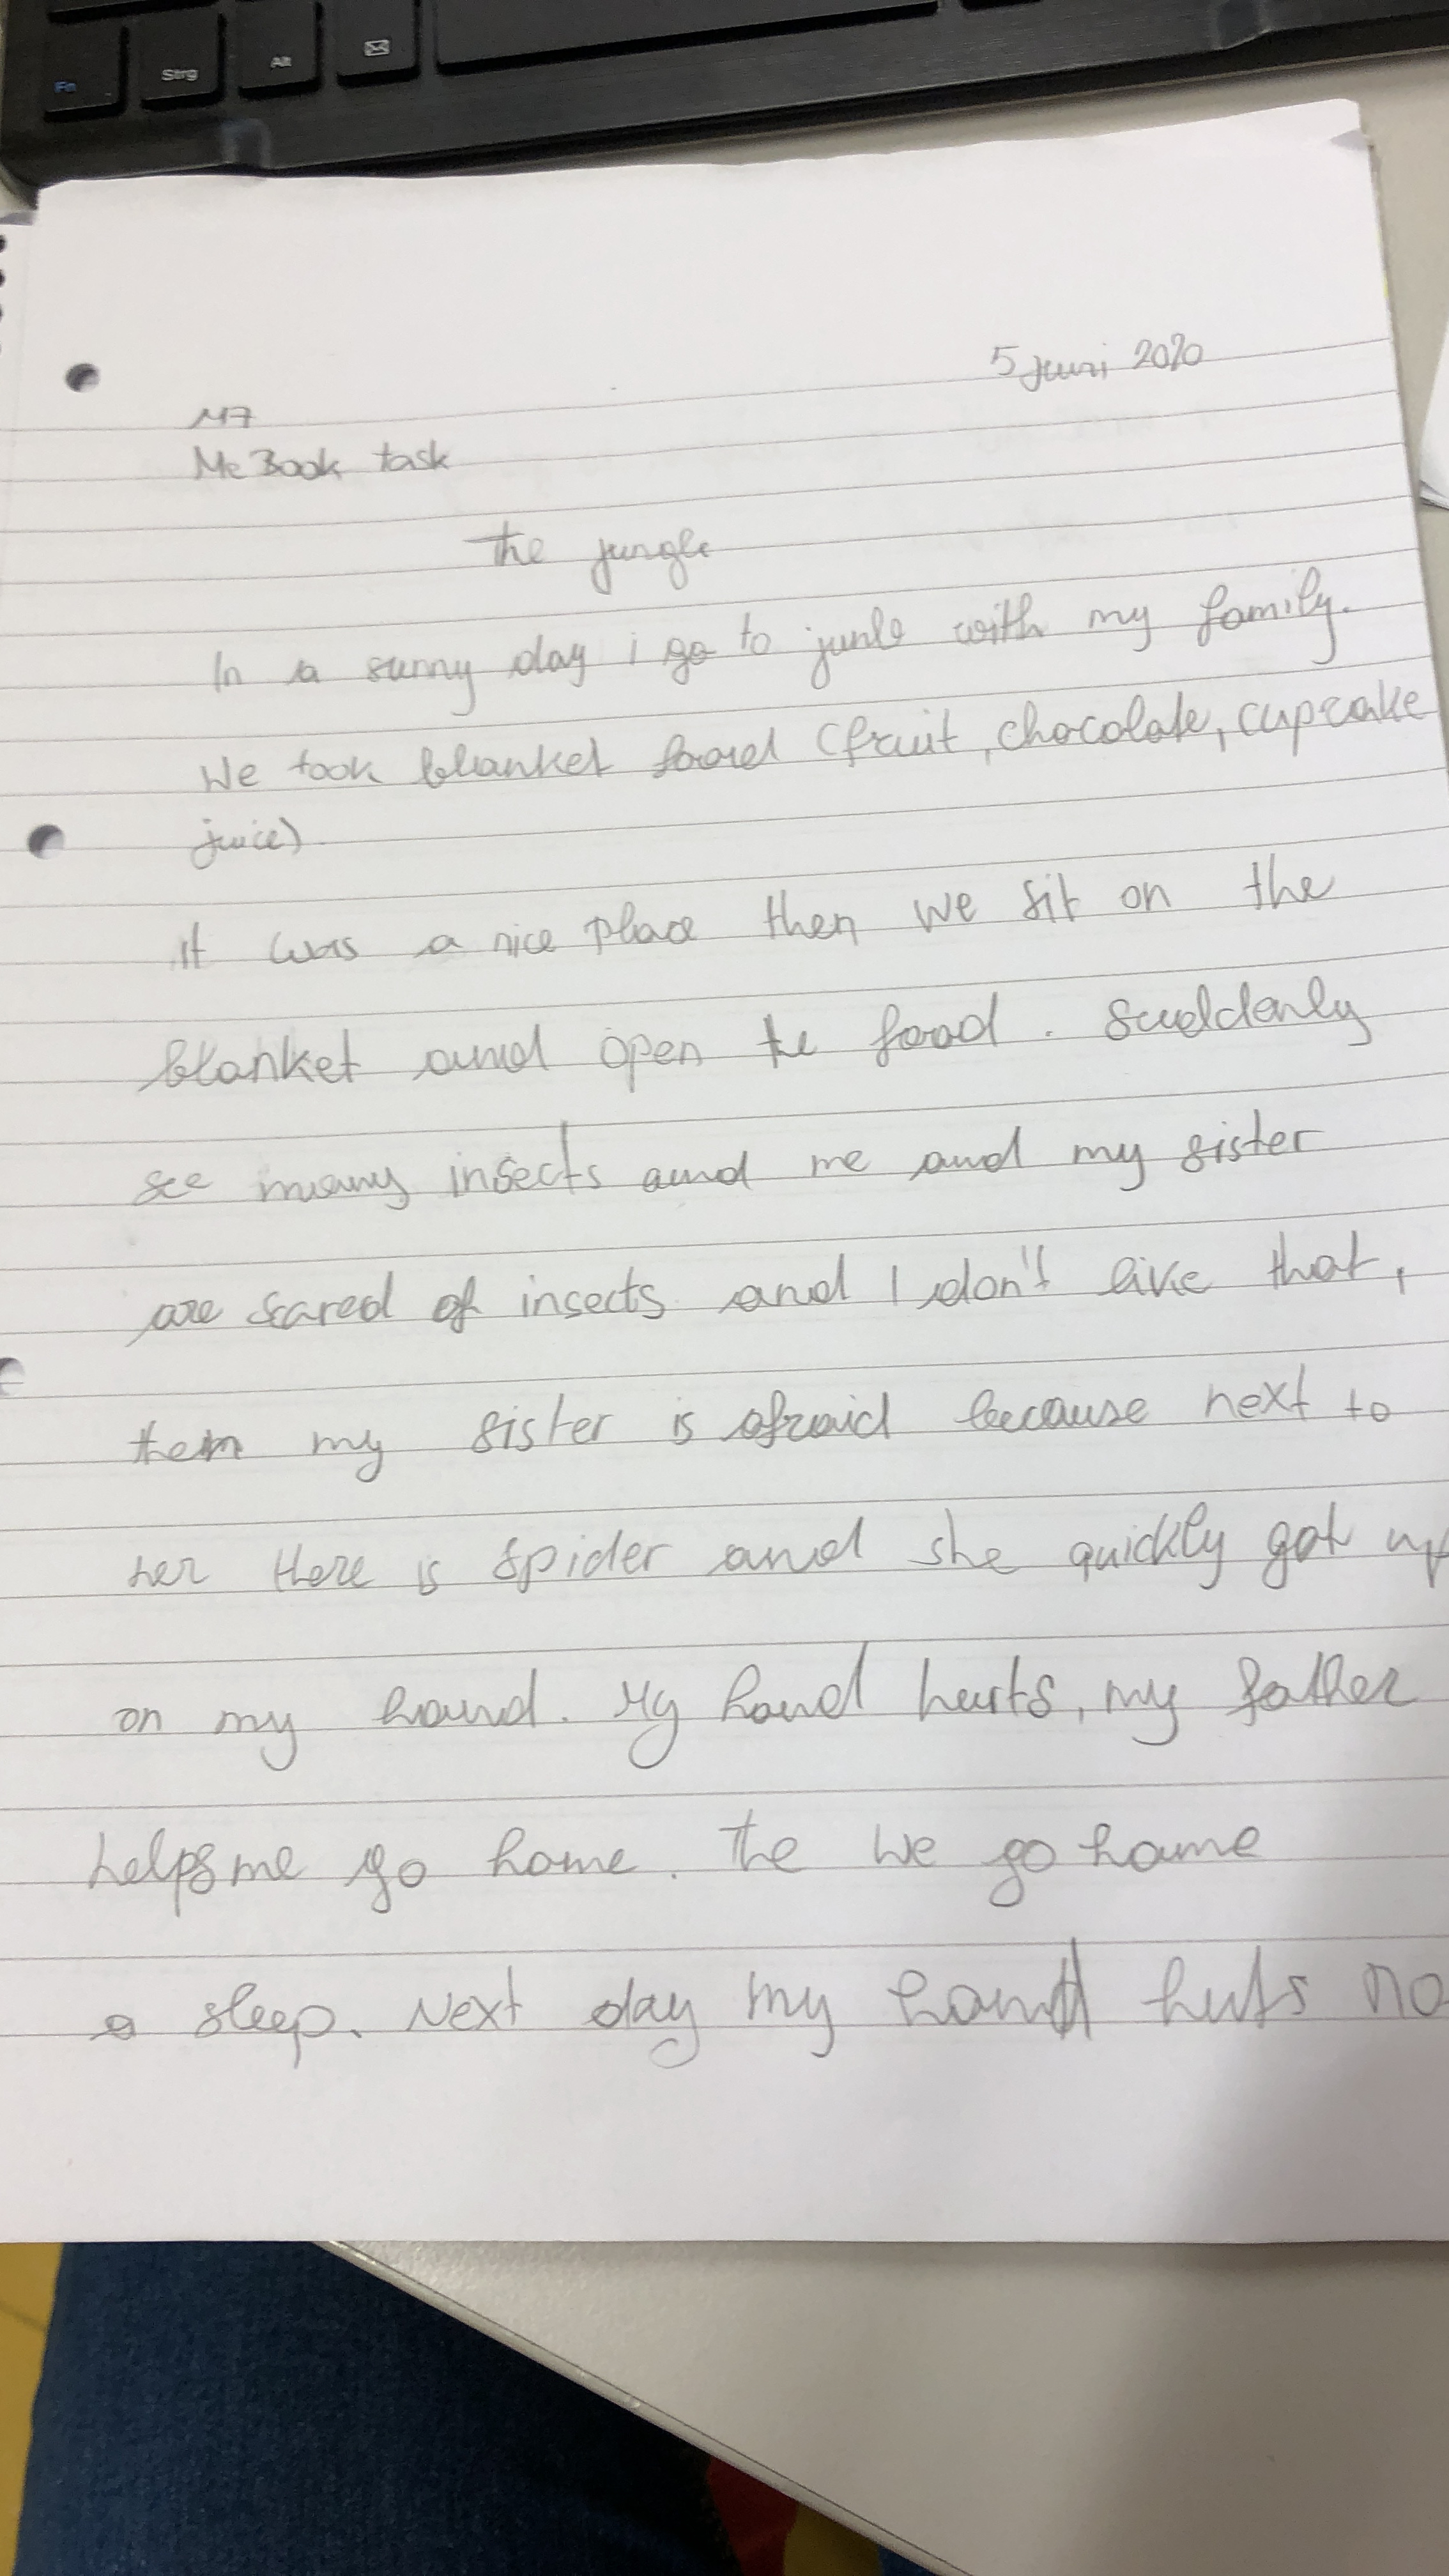 Fn Strg Alt
5 Juni 2020
M7
Me Book task
The jungle
In a sunny day i go to junle with my family.
We took blanket food (fruit, chocolate, cupcake
juice)
it was a nice place then we sit on the
blanket and open the food. Suddenly
see many insects and me and my sister
are scared of insects and I don't like that,
then my sister is afraid because next to
her there is spider and she quickly got up
on my hand. My hand hurts, my father
helps me go home. The we go home
a sleep. Next day my hand huts no